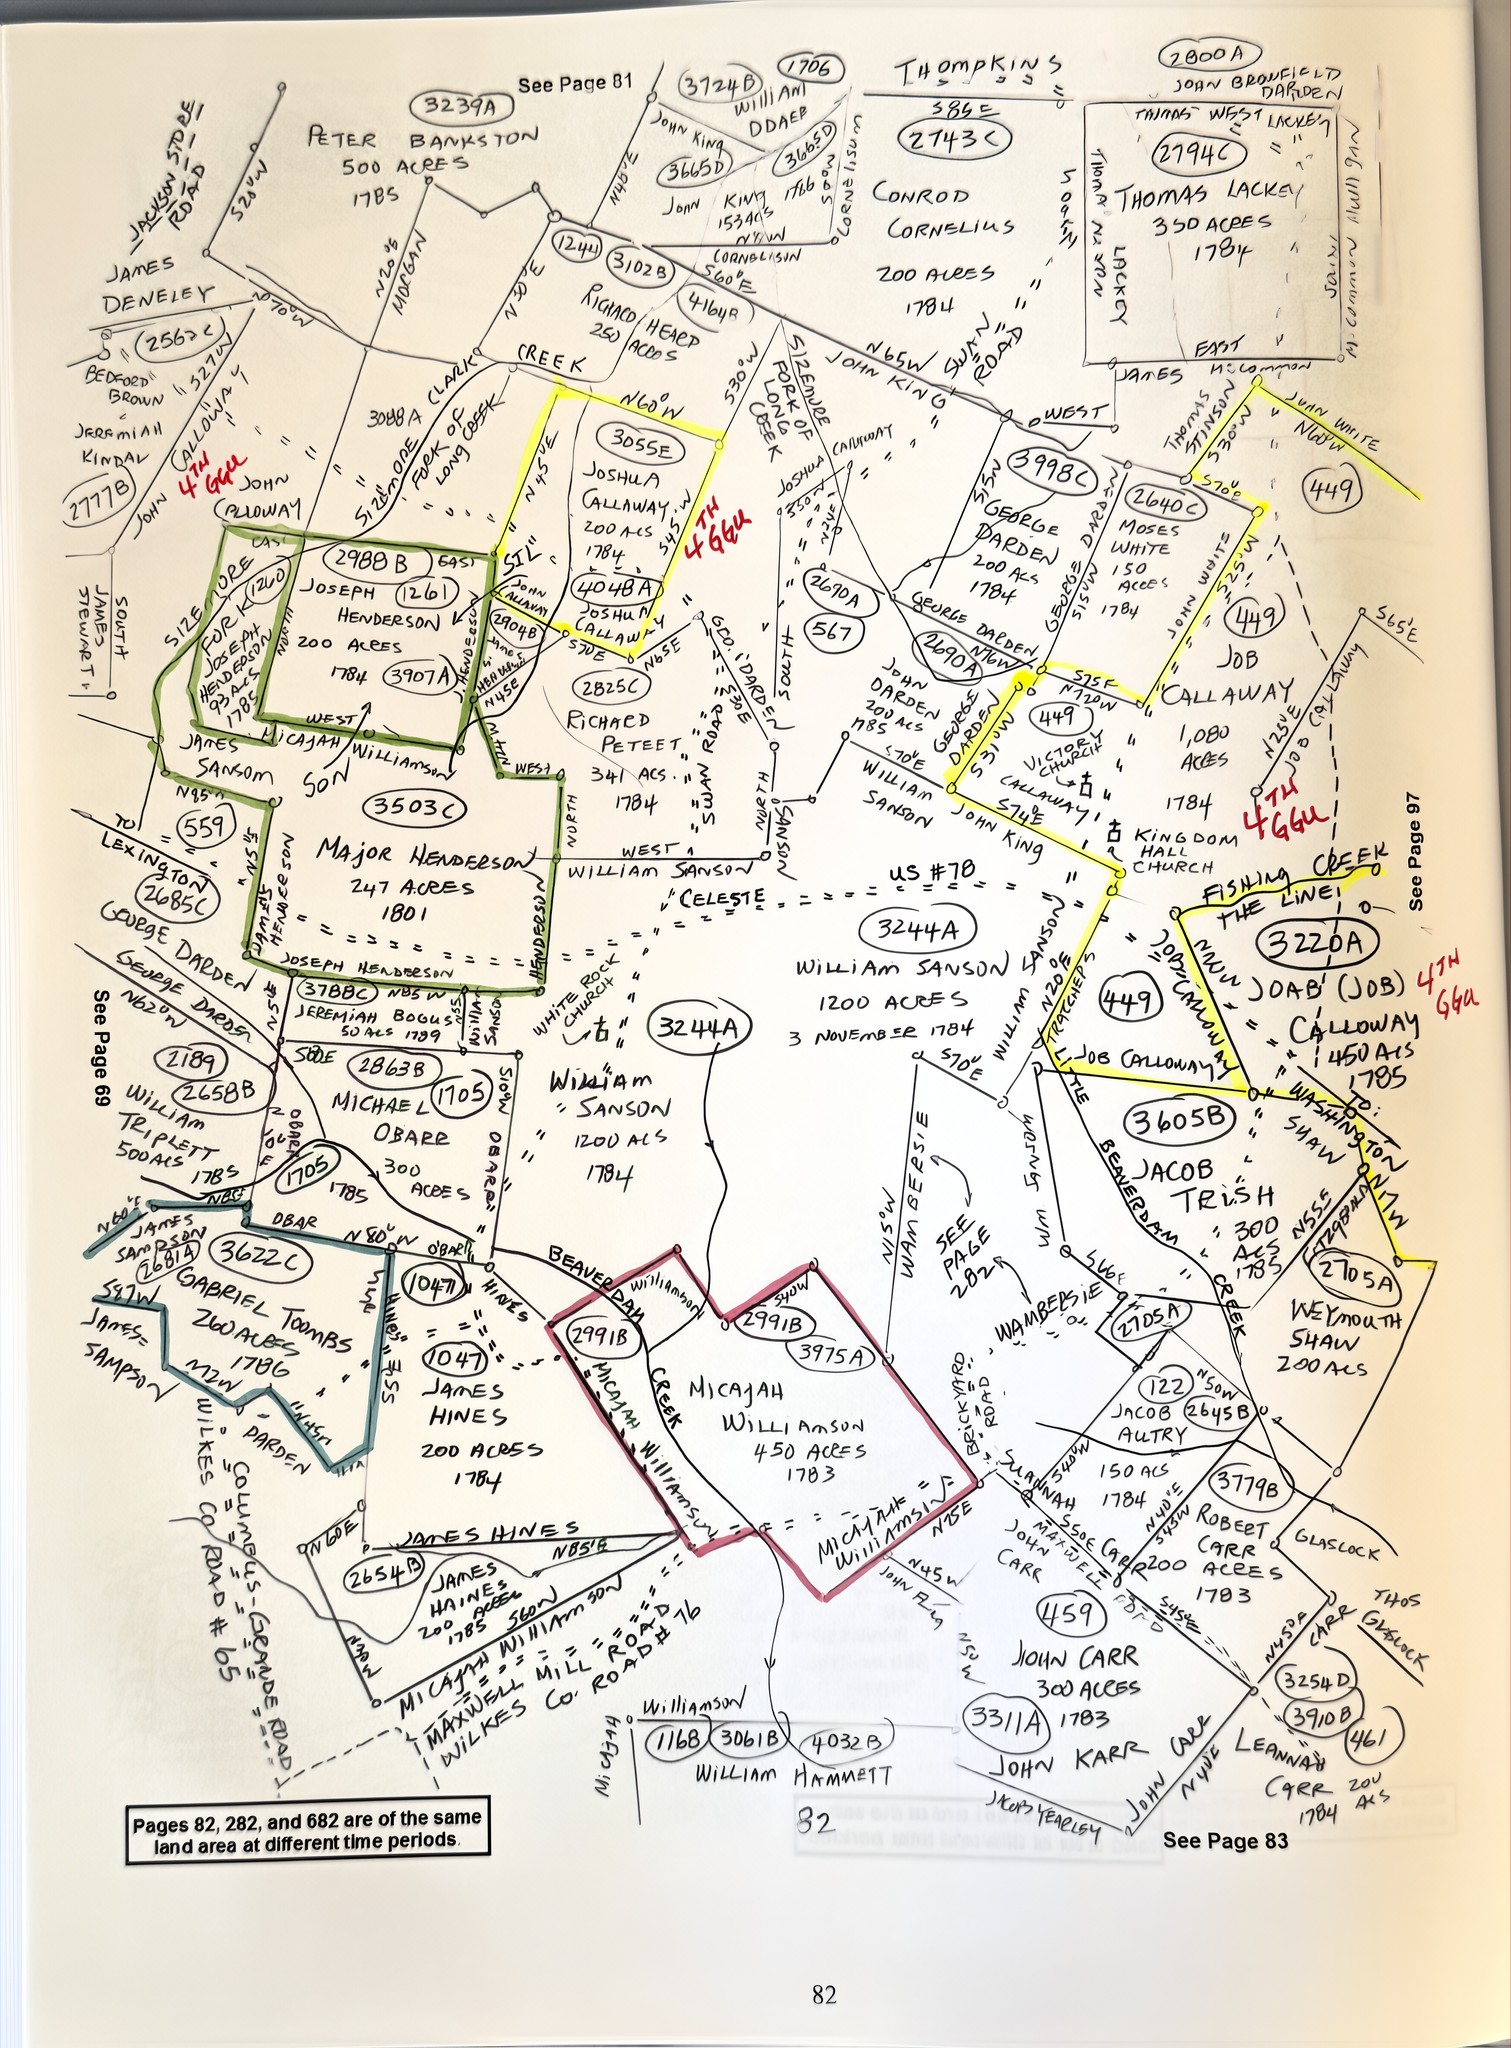 See Page 81
3239A
PETER BANKSTON
500 ACRES
1785
JACKSON STORE
ROAD
S20°W
N20°E
MORGAN
N30°E
N40°E
3724B
1706
WILLIAM
JOHN KING
3665D
3665D
1766
JOHN KING
153 ACS
CORNELISON
THOMPKINS
S86E
2743C
CONROD
CORNELIUS
200 ACRES
1784
2800A
JOHN BROWFIELD
DARDEN
THOMAS WEST LACKEY
2794C
THOMAS LACKEY
350 ACRES
1784
LACKEY
EAST
JAMES McCOMMON
JAMES
DENELEY
N70°W
2562C
BEDFORD
BROWN
&
JEREMIAH
KINDAL
2777B
S27W
JOHN CALLOWAY
4TH
GGU
JOHN
CALLOWAY
SOUTH
JAMES
STEWART
1244
3102B
S60°E
4164B
RICHARD HEARD
250 ACRES
CLARK
CREEK
3088A
SIZEMORE
FORK OF
LONG CREEK
N60°W
S30°W
SIZEMORE
FORK OF
LONG
CREEK
N65W
JOHN KING
SWAN
ROAD
WEST
3055E
JOSHUA
CALLAWAY
200 ACS
1784
4048A
JOSHUA
CALLAWAY
N45°E
S45°W
4TH
GGU
JOSHUA CALLAWAY
3998C
S15W
GEORGE
DARDEN
200 ACS
1784
GEORGE DARDEN
S15°W
2640C
MOSES
WHITE
150
ACRES
1784
THOMAS
STINSON
S30°W
S70°E
JOHN WHITE
N60°W
449
JOHN WHITE
S25°W
449
JOB
CALLAWAY
1,080
ACRES
1784
S65°E
N25°E
JOB CALLAWAY
4TH
GGU
EAST
2988B
EAST
JOSEPH
1261
HENDERSON
200 ACRES
1784
3907A
SIZEMORE
FORK
1260
JOSEPH
HENDERSON
93 ACS
1785
NORTH
WEST
MICAJAH WILLIAMSON
SON
JAMES
SANSOM
J. HENDERSON
JOHN
CALLAWAY
2904B
N45E
S70E
N65E
2825C
RICHARD
PETEET
341 ACS.
1784
GEO. DARDEN
S30E
SWAN ROAD
SOUTH
NORTH
SANSON
2690A
567
GEORGE DARDEN
N76W
2690A
JOHN
DARDEN
200 ACS
1785
GEORGE
DARDEN
S31°W
S75E
N720W
449
VICTORY
CHURCH
CALLAWAY
S70°E
WILLIAM
SANSON
S74°E
JOHN KING
KINGDOM
HALL
CHURCH
MAIN
WEST
NORTH
N85W
559
TO
LEXINGTON
2685C
GEORGE DARDEN
3503C
MAJOR HENDERSON
247 ACRES
1801
JAMES
HENDERSON
HENDERSON
WEST
WILLIAM SANSON
CELESTE
US #78
See Page 97
FISHING CREEK
THE LINE
3220A
JOAB (JOB)
CALLOWAY
450 ACS
1785
4TH
GGU
3244A
WILLIAM SANSON
1200 ACRES
3 NOVEMBER 1784
WILLIAM SANSON
N20°E
449
JOB CALLOWAY
JOB CALLOWAY
See Page 69
GEORGE DARDEN
N62°W
JOSEPH HENDERSON
3788C
N85W
JEREMIAH BOGUS
50 ACS 1789
WILLIAM
SANSON
WHITE ROCK
CHURCH
3244A
S70°E
2189
2658B
WILLIAM
TRIPLETT
500 ACS
1785
S80E
2863B
MICHAEL
1705
OBARR
300
ACRES
1705
1785
OBARR
S10W
OBARR
WILLIAM
SANSON
1200 ACS
1784
N15°W
WAMBERSIE
SEE
PAGE
282
WM SANSOM
LITTLE
BEAVERDAM
CREEK
3605B
JACOB
TRISH
300
ACS
1785
TO:
WASHINGTON
SHAW
N17W
N55E
2705A
WEYMOUTH
SHAW
200 ACS
N60°E
N85E
JAMES
SAMPSON
2681A
OBAR
N80°W
O'BARR
3622C
GABRIEL TOOMBS
260 ACRES
1786
S87W
JAMES
SAMPSON
N45W
DARDEN
HINES
1047
HINES
1047
JAMES
HINES
200 ACRES
1784
BEAVERDAM
CREEK
WILLIAMSON
2991B
S40W
2991B
3975A
MICAJAH
WILLIAMSON
450 ACRES
1783
MICAJAH WILLIAMSON
MICAJAH
WILLIAMSON
N75E
S66E
WAMBERSIE
2705A
BRICKYARD
ROAD
122
N50W
JACOB
2645B
AUTRY
150 ACS
1784
S40°W
N40°E
S45W
3779B
ROBERT
CARR
200 ACRES
1783
GLASCOCK
THOS
GLASCOCK
COLUMBUS-GRANDE ROAD
WILKES CO ROAD #65
N60E
JAMES HINES
N85°E
2654B
JAMES
HAINES
200 ACRES
1785
S60W
MICAJAH WILLIAMSON
MAXWELL MILL ROAD
WILKES CO. ROAD #76
SUANNAH
S50E CARR
MAXWELL
JOHN
CARR
N45W
N50W
459
JOHN CARR
300 ACRES
1783
S45°E
N450E
CARR
WILLIAMSON
MICAJAH
1168
3061B
4032B
WILLIAM HAMMETT
3311A
JOHN KARR
JACOB YEARLEY
JOHN CARR
N40E
3254D
3910B
461
LEANNAH
CARR
200
ACS
1784
82
Pages 82, 282, and 682 are of the same
land area at different time periods.
See Page 83
82